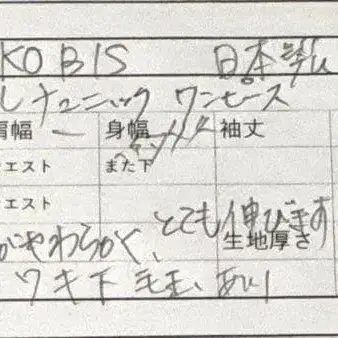 KOBIS 日本製
ルチュニック ワンピース
肩幅 ー 身幅 袖丈
エスト また下
エスト
がやわらかく、とても伸びます
生地厚さ
ワキ下 毛玉、あり